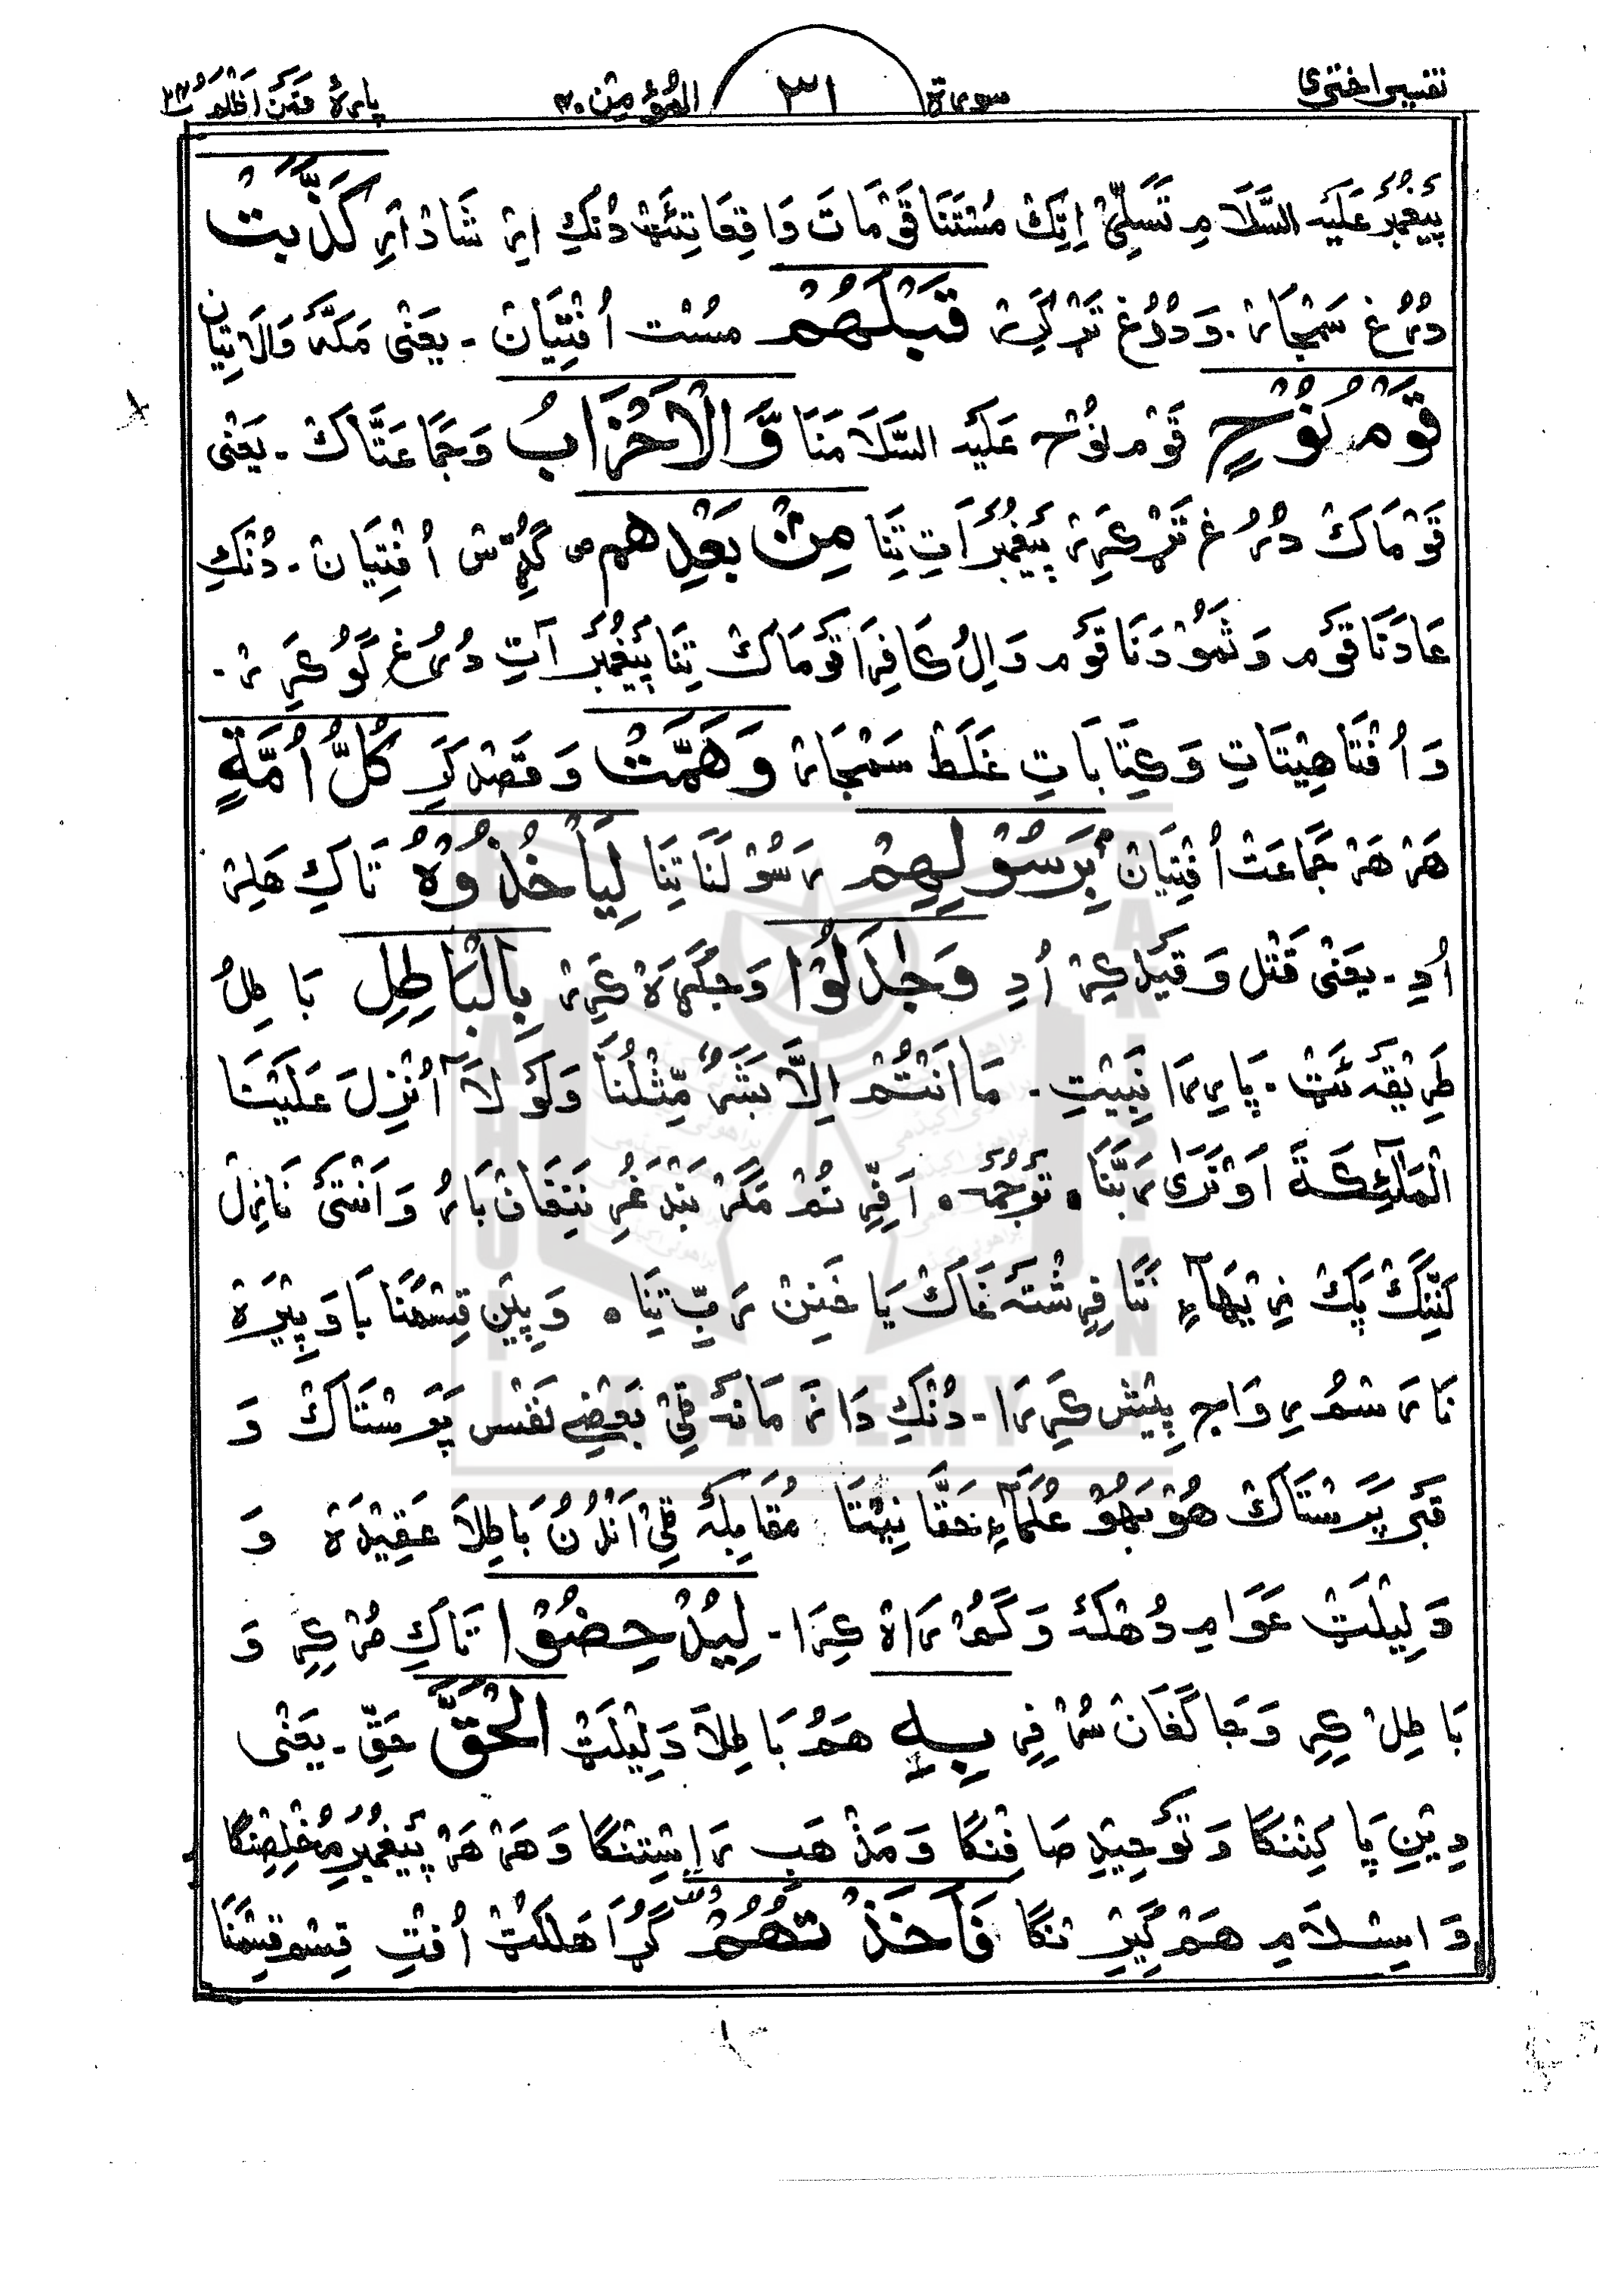 تفسیر اختری سورة ٣١ المؤمن ٤٠ پارۂ فمن اظلم ٢٤
پَیغمبر عَلَیہ السَّلَامِ تَسَلِّیْ اِتِکْ مُسْتَنَا قَوْمَاتَ وَاقِعَاتِئَٹْ دُنْکِ اِیْ شَادْ اَرِ كَذَّبَتْ
دُرُغ سَمْجَارْ۔ وَدُرُغ تَرْکِرْ قَبْلَهُمْ مُسْت اُفْتِیَانْ۔ یَعْنٰی مَکَّہ وَالَاتِیَان
قَوْمُ نُوْحٍ قَوْمِ نُوْح عَلَیہ السَّلَامَنَا وَّالْاَحْزَابُ وَجَمَاعَتَّاکْ۔ یَعْنٰی
قَوْمَاکْ دُرُغ تَرْکَرِرْ پَیغمبَرَاتِ تِنَا مِنْۢ بَعْدِهِمْ گُڈِّسْ اُفْتِیَانْ۔ دُنْکِ
عَادَنَا قَوْم وَثَمُوْدَنَا قَوْم وَاِلُ کَافِرَا قَوْمَاکْ تِنَا پَیغمبَرآتِ دُرُغ گوُ کَرِرْ۔
وَاُفْتَا ھِیْتَاتِ وَکِتَابَاتِ غَلَطْ سَمْجَارْ وَهَمَّتْ وَقَصْد کَرِ كُلُّ اُمَّةٍۭ
ھَرْ ھَرْ جَمَاعَتْ اُفْتِیَانْ بِرَسُوْلِهِمْ رَسُوْلَنَا تِنَا لِیَاْخُذُوْهُ تَاکِ ھَلِرْ
اُدِ۔ یَعْنٰی قَتْل وَقَیْد کِرْ اُدِ وَجٰدَلُوْا وَجگَڑہ کَرِرْ بِالْبَاطِلِ بَاطِلُ
طَرِیْقَہ ئَٹْ۔ پَارِرَا نَبِیْتِ۔ مَا اَنْتُمْ اِلَّا بَشَرٌ مِّثْلُنَا وَلَوْلَآ اُنْزِلَ عَلَیْنَا
الْمَلٰٓئِکَةُ اَوْ نَرٰی رَبَّنَا ۰ تَوْجُمَہ ۰ اَفِّرِ نُمْ مَگَرْ بَنْدَغُ نَنِتَفَانْ بَارُ وَاَنْتَئ نَازِلْ
کَنِّنْگ پَکْ نَنَا فِرِشْتَہ غَاکْ یَا خَنِنْ رَبِّ تِنَا ۰ وَپِیْن قِسْمَنَا بَاوَپِیْرَہ
نَا رَسْمُ رِوَاج پِیْشْ کَرِرَا۔ دُنْکِ دَا زَمَانَہ ٹِیْ بَعْضِ نَفْس پَرَسْتَاکْ وَ
قَبَر پَرَسْتَاکْ ھُوْبَہُوْ عُلَمَآءِ حَقَّانِیْتَا مُقَابِلَہ ٹِیْ اَنْدُنُ بَاطِلَا عَقِیْدَہ وَ
دَلِیْلَٹْ عَوَامِ دُھْکَہ وَگُمْرَاہ کِرَا۔ لِیُدْحِضُوْا تَاکِ مُرْ کِرِ وَ
بَاطِلْ کِرِ وَجَاگَغَانْ سُرْفِرِ بِهِ ھَمُ بَاطِلَا دَلِیْلَٹْ الْحَقَّ حَقِّ۔ یَعْنٰی
دِیْنِ پَاکِنْنگَا وَتَوْحِیْدِ صَافِنْگا وَمَذْھَبِ رَاسْتِنْگَا وَھَرْ ھَرْ پَیغمبَرِ مُخْلِصِنْگَا
وَاِسْلَامِ ھَمْگِیْرِنْگَا فَاَخَذْتُهُمْ گُرَا ھَلْکُٹْ اُفْتِ قِسْم قِسْمَنَا